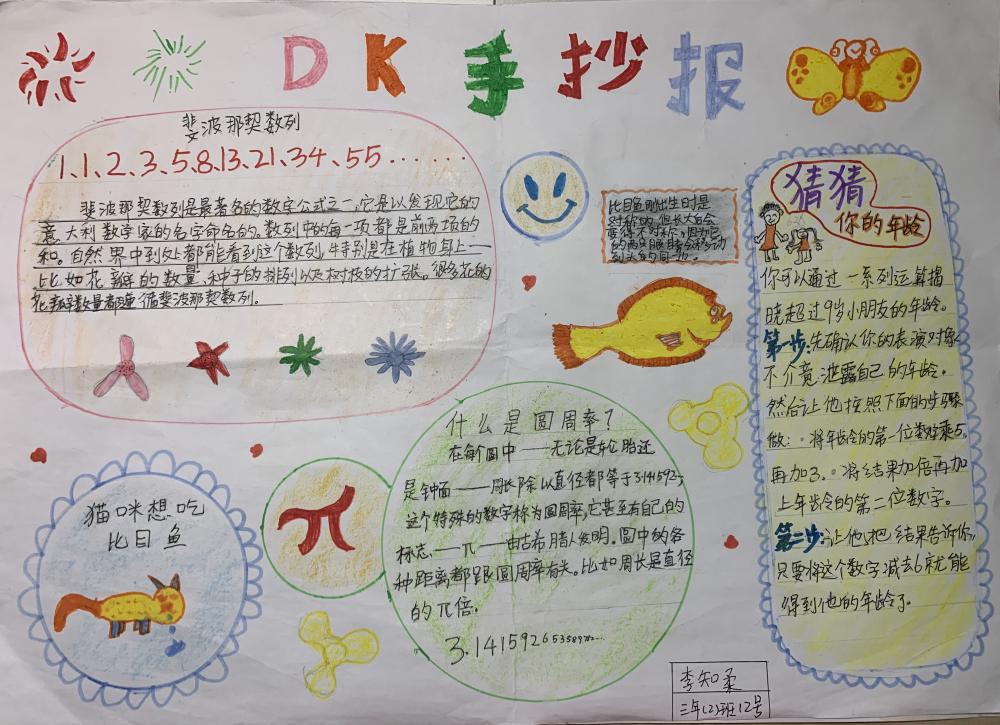 DK手抄报
斐波那契数列
1、1、2、3、5、8、13、21、34、55......
斐波那契数列是最著名的数字公式之一,它是以发现它的
意大利数学家的名字命名的。数列中的每一项都是前两项的
和。自然界中到处都能看到这个数列,特别是在植物身上——
比如花瓣的数量、种子的排列以及树枝的扩张。很多花的
花瓣数量都遵循斐波那契数列。
比目鱼刚出生时是
对称的,但长大后会
变得不对称,因为它
的两只眼睛会移动
到头的同一侧。
猜猜
你的年龄
你可以通过一系列运算揭
晓超过9岁小朋友的年龄。
第一步:先确认你的表演对象
不介意泄露自己的年龄。
然后让他按照下面的步骤
做:·将年龄的第一位数字乘5,
再加3。·将结果加倍再加
上年龄的第二位数字。
第二步:让他把结果告诉你,
只要将这个数字减去6就能
得到他的年龄了。
什么是圆周率?
在每个圆中——无论是轮胎还
是钟面——周长除以直径都等于3.141592……
这个特殊的数字称为圆周率,它甚至有自己的
标志——π——由古希腊人发明。圆中的各
种距离都跟圆周率有关。比如周长是直径
的π倍.
3.14159265358979...
π
猫咪想吃
比目鱼
李知柔
三年(2)班12号